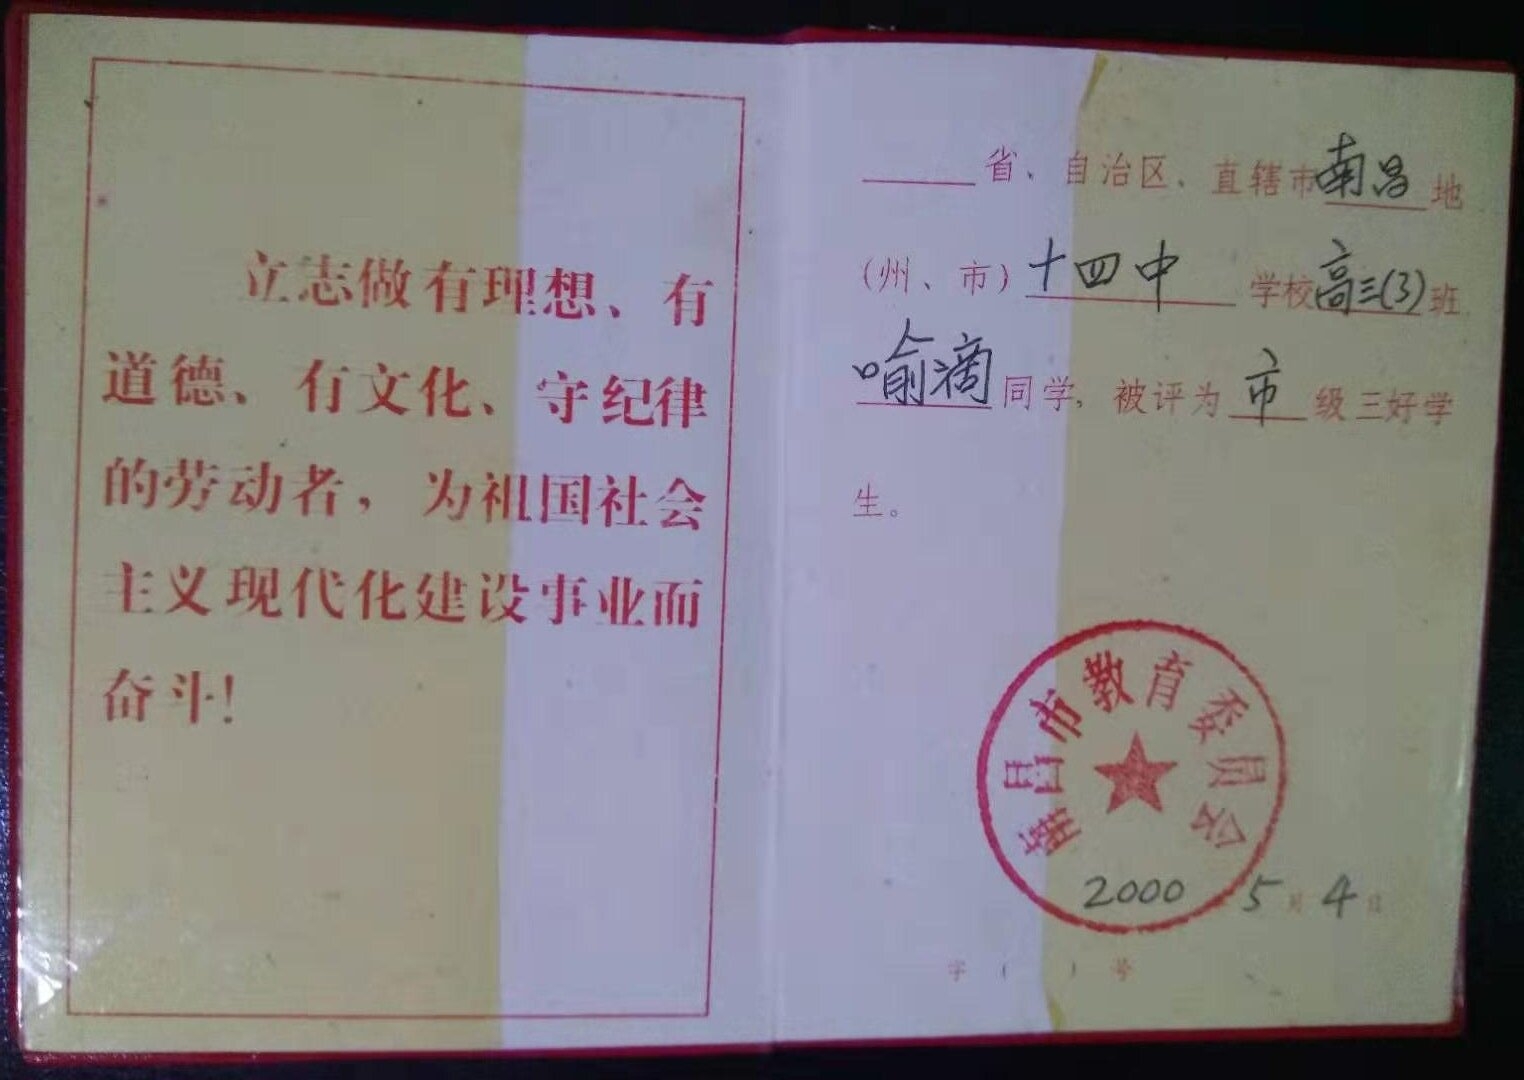 立志做有理想、有
道德、有文化、守纪律
的劳动者，为祖国社会
主义现代化建设事业而
奋斗！
省、自治区、直辖市南昌地
（州、市）十四中学校高三(3)班
喻滴同学，被评为市级三好学
生。
南昌市教育委员会
2000 5月4日
字（ ）号